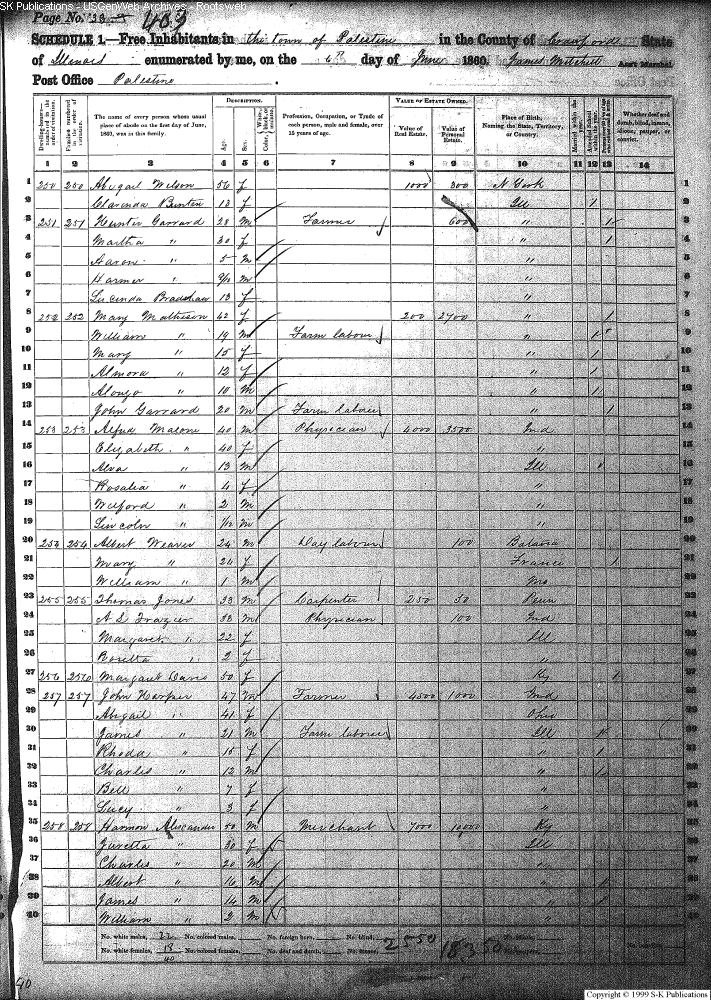 SK Publications - USGenWeb Archives - Rootsweb
Page No. 38
403
SCHEDULE 1.—Free Inhabitants in the town of Palestine in the County of Crawford State
of Illenois enumerated by me, on the 6th day of June 1860. James Mitchell Ass't Marshal
Post Office Palestine
Dwelling-houses—numbered in the order of visitation.
Families numbered in the order of visitation.
The name of every person whose usual place of abode on the first day of June, 1860, was in this family.
DESCRIPTION.
Age.
Sex.
Color,
Profession, Occupation, or Trade of each person, male and female, over 15 years of age.
VALUE OF ESTATE OWNED.
Value of Real Estate.
Value of Personal Estate.
Place of Birth, Naming the State, Territory, or Country.
Married within the year.
Attended School within the year.
Whether deaf and dumb, blind, insane, idiotic, pauper, or convict.
1 2 3 4 5 6 7 8 9 10 11 12 13 14
1 250 250 Abigail Wilson 56 f 1000 300 N York 1
2 Clarinda Bunten 13 f Ill 1 2
3 251 251 Hunter Garrard 28 m Farmer 600 " 1 3
4 Martha " 30 f " 1 4
5 Aaron " 5 m " 5
6 Harmer " 9/12 m " 6
7 Lucinda Bradshaw 13 f " 7
8 252 252 Mary Mathison 42 f 200 2700 " 1 8
9 William " 19 m Farm labour " 1 9
10 Mary " 15 f " 1 10
11 Almora " 12 f " 1 11
12 Alonzo " 10 m " 1 12
13 John Garrard 20 m Farm labour " 1 13
14 253 253 Alfred Malone 40 m Physician 4000 3500 Ind 14
15 Elizabeth " 40 f " 15
16 Alva " 13 m Ill 16
17 Rosalia " 4 f " 17
18 Wilford " 2 m " 18
19 Lincoln " 1/12 m " 19
20 254 254 Albert Weaver 24 m Day labour 100 20
21 Mary " 24 f France 21
22 William " 1 m Mo 22
23 255 255 Thomas Jones 33 m Carpenter 250 50 Penn 23
24 A L Frazier 33 m Physician 100 Ind 24
25 Margaret " 22 f Ill 25
26 Rosetta " 2 f " 26
27 256 256 Margaret Davis 50 f Ky 27
28 257 257 John Harper 47 m Farmer 4500 1000 Ind 28
29 Abigail " 41 f Ohio 29
30 James " 21 m Farm labour Ill 30
31 Rhoda " 15 f " 1 31
32 Charles " 12 m " 1 32
33 Bell " 7 f " 33
34 Lucy " 3 f 34
35 258 258 Harmon Alexander 50 m Merchant 7000 10000 Ky 35
36 " 30 f Ill 36
37 Charles " 20 m 37
38 Albert " 16 m " 38
39 James " 14 m " 39
40 William " 2 m 40
No. white males, 22 No. colored males, No. foreign born, No. blind,
No. white females, 18 No. colored females, No. deaf and dumb, No. insane,
40
2550 18350
40
Copyright © 1999 S-K Publications